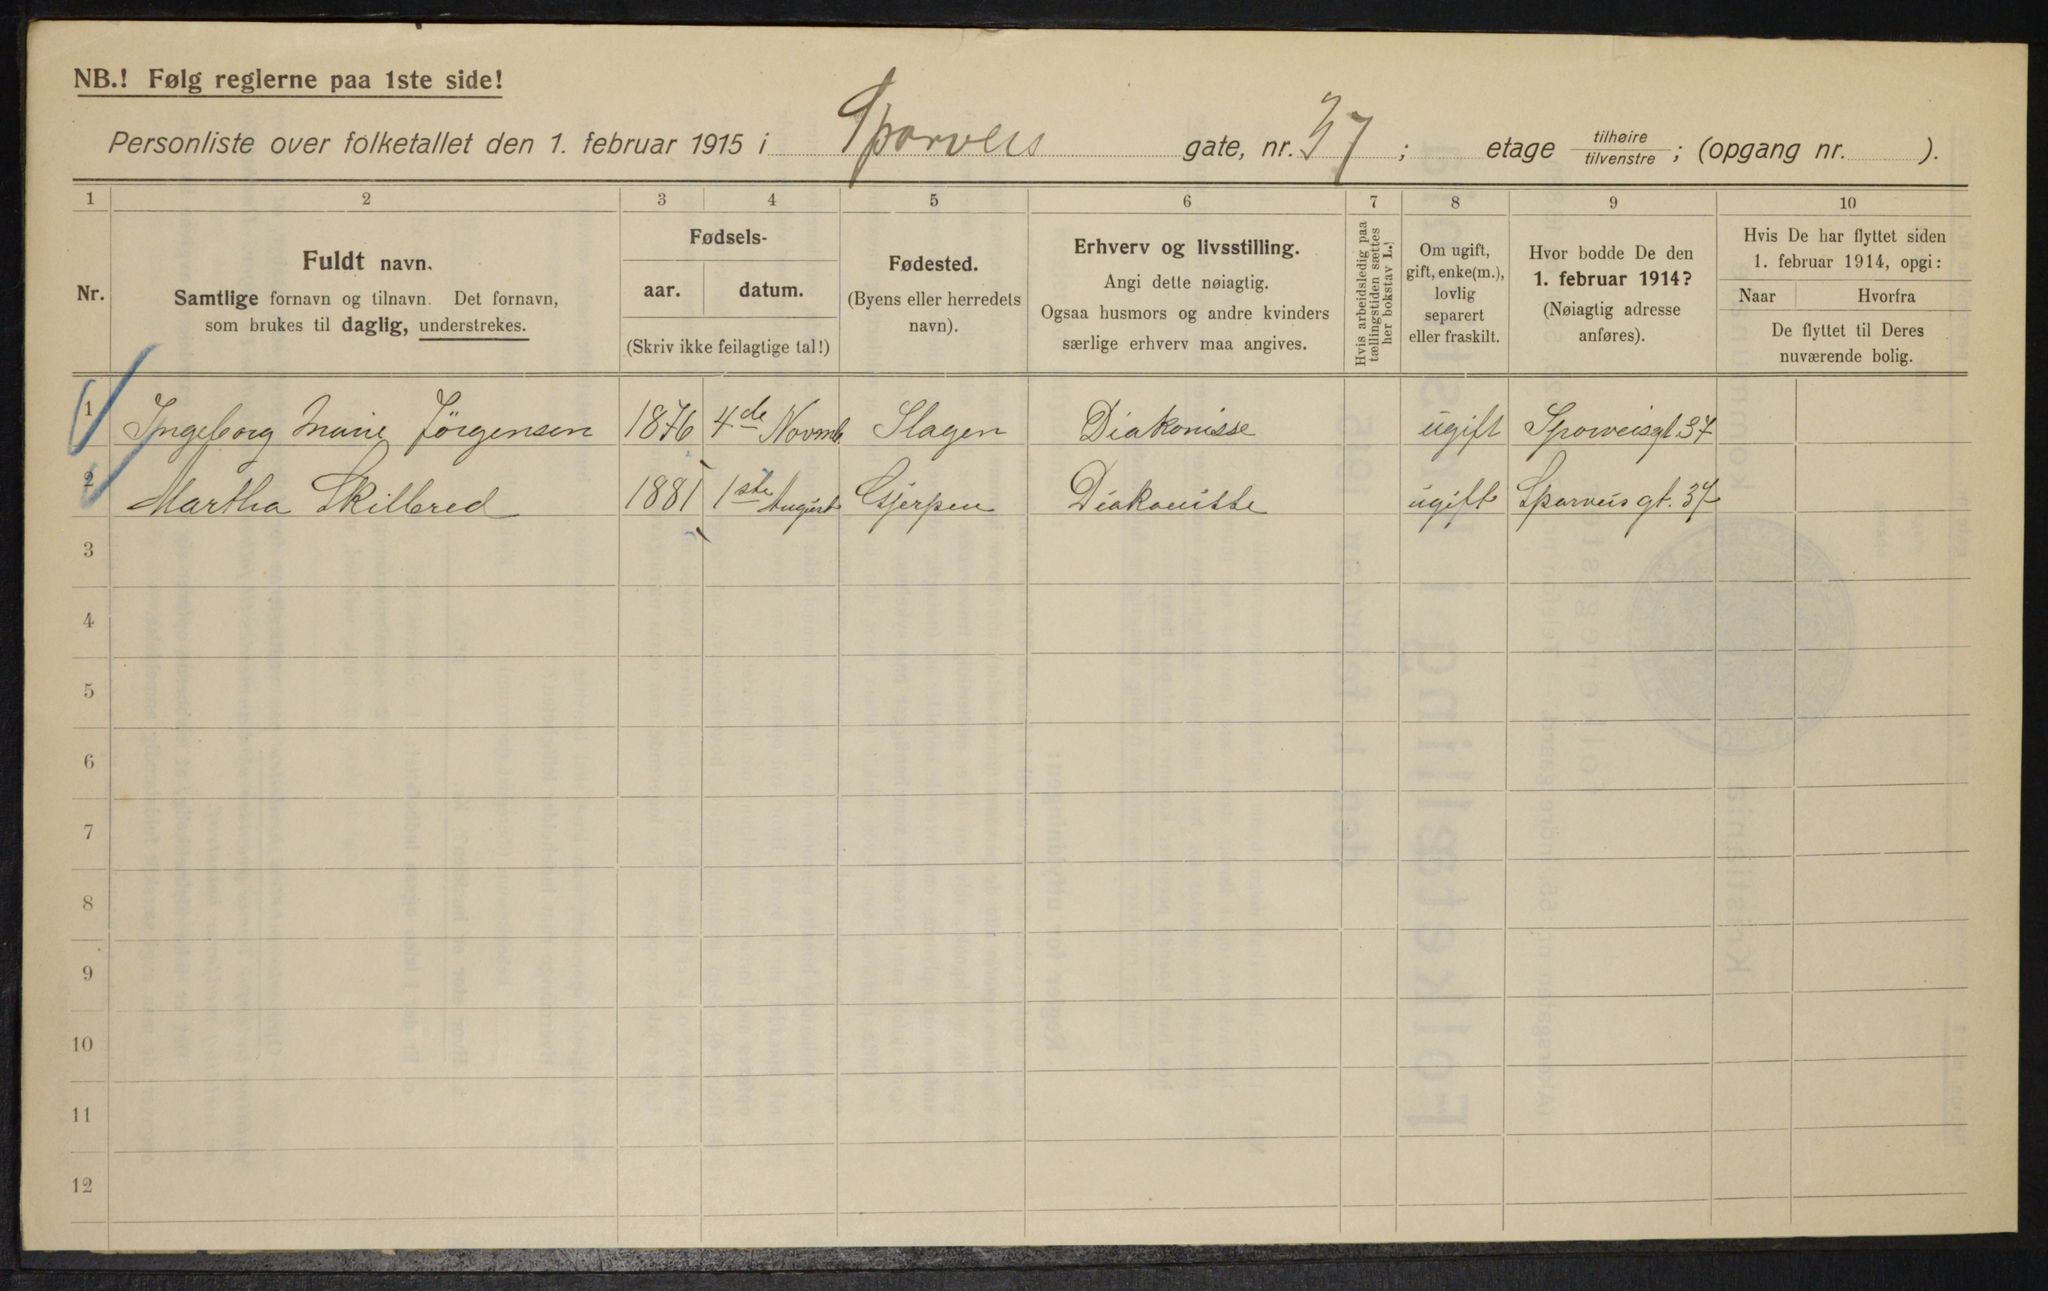 NB.! Følg reglerne paa 1ste side!
Personliste over folketallet den 1. februar 1915 i Sporveis gate, nr. 37; etage tilhøire tilvenstre; (opgang nr. ).
1 2 3 4 5 6 7 8 9 10
Nr.
Fuldt navn.
Samtlige fornavn og tilnavn. Det fornavn,
som brukes til daglig, understrekes.
Fødsels-
aar. datum.
(Skriv ikke feilagtige tal!)
Fødested.
(Byens eller herredets
navn).
Erhverv og livsstilling.
Angi dette nøiagtig.
Ogsaa husmors og andre kvinders
særlige erhverv maa angives.
Hvis arbeidsledig paa
tællingstiden sættes
her bokstav L.!
Om ugift,
gift, enke(m.),
lovlig
separert
eller fraskilt.
Hvor bodde De den
1. februar 1914?
(Nøiagtig adresse
anføres).
Hvis De har flyttet siden
1. februar 1914, opgi:
Naar Hvorfra
De flyttet til Deres
nuværende bolig.
1 Ingeborg Marie Jørgensen 1876 4de Novmb Slagen Diakonisse ugift Sporveisgt. 37
2 Martha Skilbred 1881 1ste August Gjerpen Diakonisse ugift Sporveisgt. 37
3
4
5
6
7
8
9
10
11
12